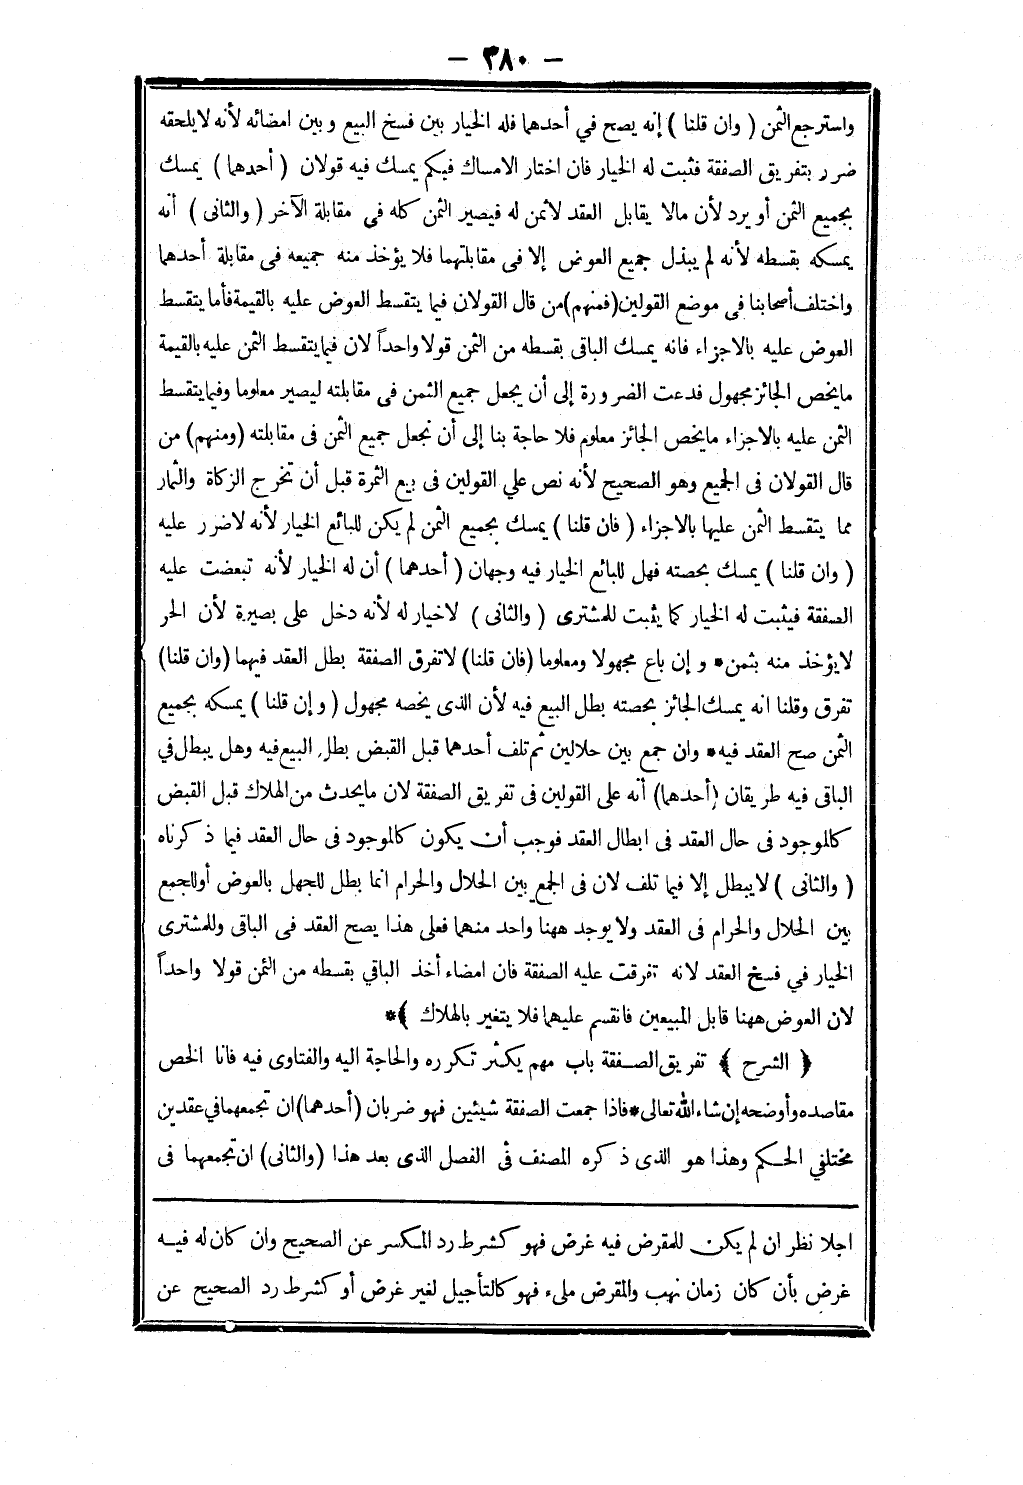 - ٣٨٠ -
واسترجع الثمن ( وان قلنا ) إنه يصح في أحدهما فله الخيار بين فسخ البيع وبين امضائه لأنه لايلحقه
ضرر بتفريق الصفقة فثبت له الخيار فان اختار الامساك فبكم يمسك فيه قولان ( أحدهما ) يمسك
بجميع الثمن أو يرد لأن مالا يقابل العقد لاثمن له فيصير الثمن كله فى مقابلة الآخر ( والثانى ) أنه
يمسكه بقسطه لأنه لم يبذل جميع العوض إلا فى مقابلتهما فلا يؤخذ منه جميعه فى مقابلة أحدهما
واختلف أصحابنا فى موضع القولين (فمنهم) من قال القولان فيما يتقسط العوض عليه بالقيمة فأما يتقسط
العوض عليه بالاجزاء فانه يمسك الباقى بقسطه من الثمن قولا واحداً لان فيما يتقسط الثمن عليه بالقيمة
مايخص الجائز مجهول فدعت الضرورة إلى أن يجعل جميع الثمن فى مقابلته ليصير معلوما وفيما يتقسط
الثمن عليه بالاجزاء مايخص الجائز معلوم فلا حاجة بنا إلى أن نجعل جميع الثمن فى مقابلته (ومنهم) من
قال القولان فى الجميع وهو الصحيح لأنه نص علي القولين فى بيع الثمرة قبل أن تخرج الزكاة والثمار
مما يتقسط الثمن عليها بالاجزاء ( فان قلنا ) يمسك بجميع الثمن لم يكن للبائع الخيار لأنه لاضرر عليه
( وان قلنا ) يمسك بحصته فهل للبائع الخيار فيه وجهان ( أحدهما ) أن له الخيار لأنه تبعضت عليه
الصفقة فيثبت له الخيار كما يثبت للمشترى ( والثانى ) لاخيار له لأنه دخل على بصيرة لأن الحر
لايؤخذ منه بثمن* و إن باع مجهولا ومعلوما (فان قلنا) لاتفرق الصفقة بطل العقد فيهما (وان قلنا)
تفرق وقلنا انه يمسك الجائز بحصته بطل البيع فيه لأن الذى يخصه مجهول ( و إن قلنا ) يمسكه بجميع
الثمن صح العقد فيه* وان جمع بين حلالين ثم تلف أحدهما قبل القبض بطل البيع فيه وهل يبطل في
الباقى فيه طريقان (أحدهما) أنه على القولين فى تفريق الصفقة لان مايحدث من الهلاك قبل القبض
كالموجود فى حال العقد فى ابطال العقد فوجب أن يكون كالموجود فى حال العقد فيما ذكرناه
( والثانى ) لايبطل إلا فيما تلف لان فى الجمع بين الحلال والحرام انما بطل للجهل بالعوض أوللجمع
بين الحلال والحرام فى العقد ولا يوجد ههنا واحد منهما فعلى هذا يصح العقد فى الباقى وللمشترى
الخيار في فسخ العقد لانه تفرقت عليه الصفقة فان امضاء أخذ الباقي بقسطه من الثمن قولا واحداً
لان العوض ههنا قابل المبيعين فانقسم عليهما فلا يتغير بالهلاك ﴾*
﴿ الشرح ﴾ تفريق الصفقة باب مهم يكثر تكرره والحاجة اليه والفتاوى فيه فانا الخص
مقاصده وأوضحه إن شاء الله تعالى* فاذا جمعت الصفقة شيئين فهو ضربان (أحدهما) ان تجمعهما في عقدين
مختلفي الحكم وهذا هو الذى ذكره المصنف في الفصل الذى بعد هذا (والثانى) ان تجمعهما فى
اجلا نظر ان لم يكن للمقرض فيه غرض فهو كشرط رد المكسر عن الصحيح وان كان له فيه
غرض بأن كان زمان نهب والمقرض ملىء فهو كالتأجيل لغير غرض أو كشرط رد الصحيح عن